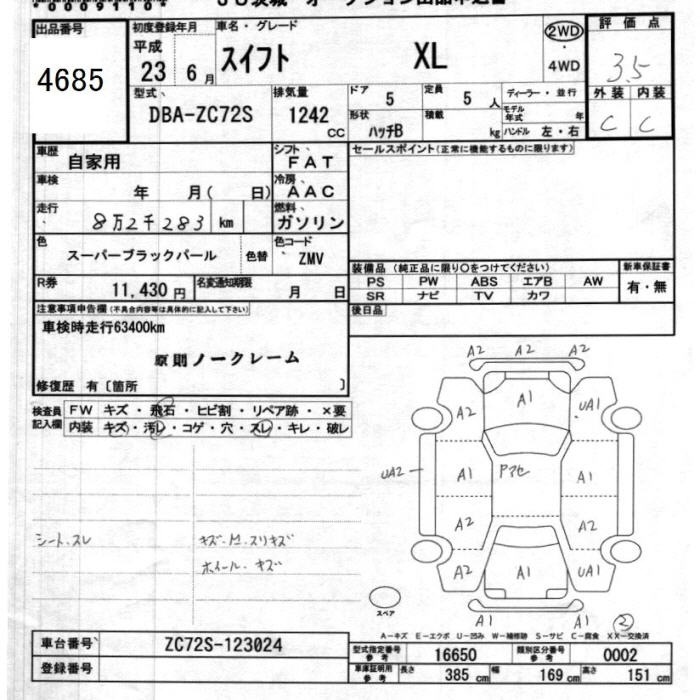 出品番号
4685
初度登録年月
平成
23 6月
車名・グレード
スイフト XL
2WD
・
4WD
評価点
3.5
外装 内装
C C
型式
DBA-ZC72S
排気量
1242
CC
ドア
5
定員
5 人
形状
ハッチB
積載
kg
ディーラー・並行
モデル年式 年
ハンドル 左・右
車歴
自家用
シフト
FAT
車検
年 月( 日)
冷房
AAC
走行
8万2千283 km
燃料
ガソリン
色
スーパーブラックパール
色替
色コード
ZMV
R券
11,430 円
名変通知期限
月 日
セールスポイント(正常に機能するものに限ります)
装備品 (純正品に限り○をつけてください)
PS PW ABS エアB AW
SR ナビ TV カワ
新車保証書
有・無
後日品
注意事項申告欄(不具合内容等は具体的に記入して下さい)
車検時走行63400km
原則ノークレーム
修復歴 有〔箇所 〕
検査員
記入欄
FW キズ・飛石・ヒビ割・リペア跡・×要
内装 キズ・汚レ・コゲ・穴・スレ・キレ・破レ
シート、スレ
ホイール・キズ
A2 A2 A2
A2 A1 UA1
UA2 A1 A1
A2 A2
A2 A1 UA1
A1 A1
2
スペア
A-キズ E-エクボ U-凹み W-補修跡 S-サビ C-腐食 XX-交換済
車台番号
ZC72S-123024
登録番号
型式指定番号
参考
16650
類別区分番号
参考
0002
車庫証明用
参考
長さ
385 cm
幅
169 cm
高さ
151 cm